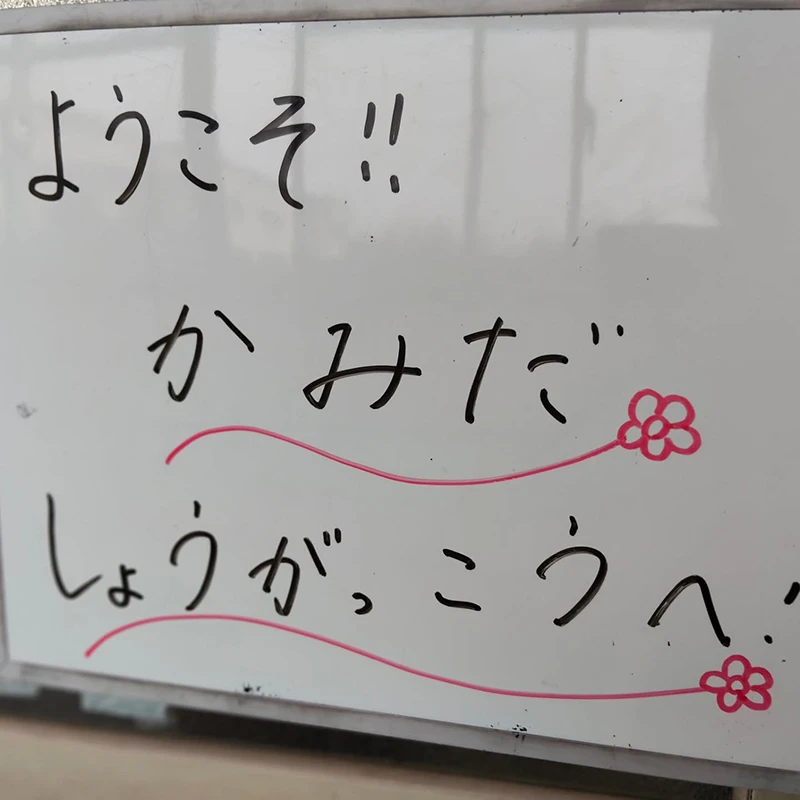 ようこそ!!
かみだ
しょうがっこうへ!